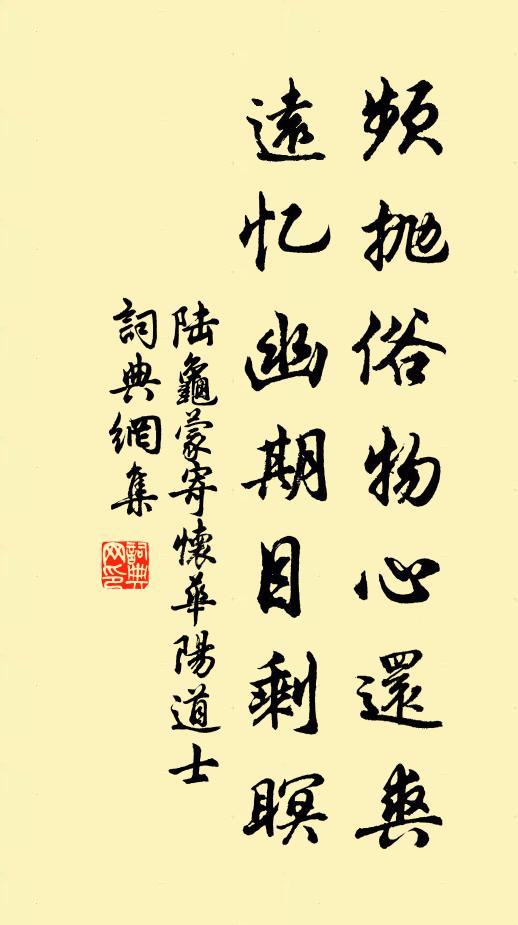 频抛俗物心還爽
遠忆幽期目剩瞑
陆龜蒙寄懷華陽道士
詞典網集
詞典網印